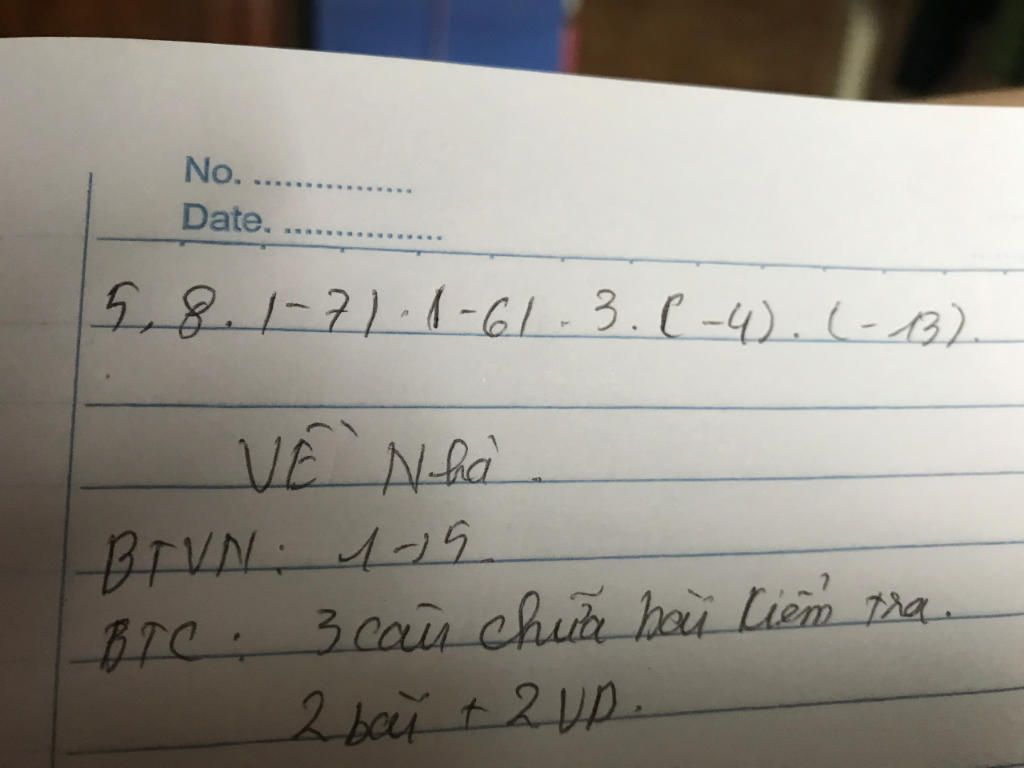 No. ................
Date. ................
5, 8 . (-7) . (-6) . 3 . (-4) . (-13).
VỀ Nhà .
BTVN : 1→5.
BTC : 3 câu chữa bài kiểm tra .
2 bài + 2 VD .